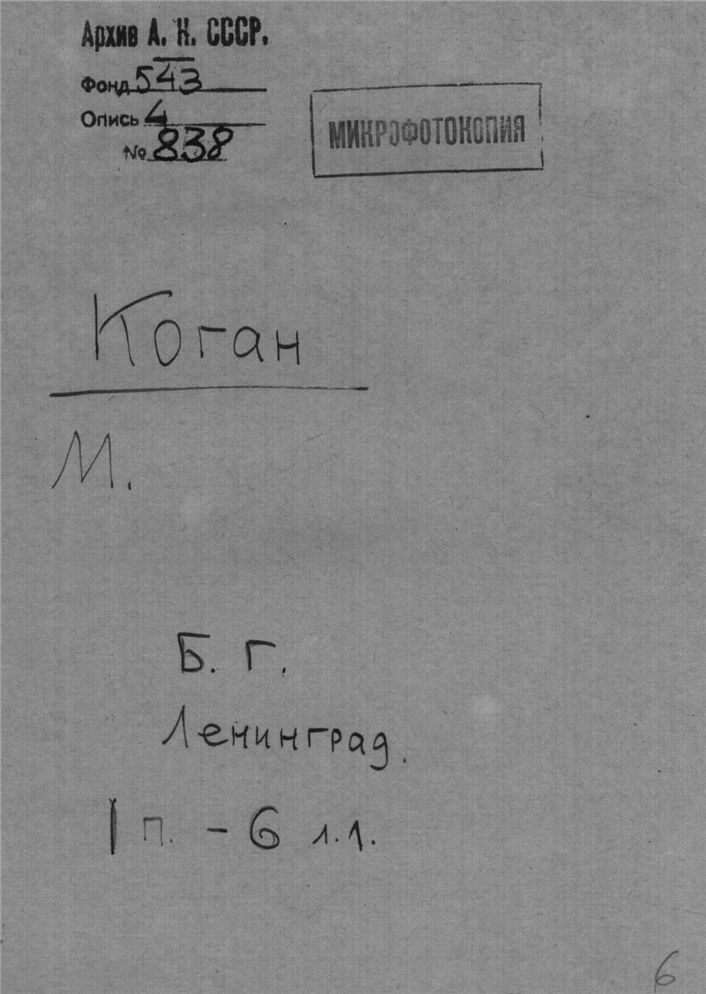 Архив А. Н. СССР.
Фонд 543
Опись 4
№ 838
МИКРОФОТОКОПИЯ
Коган
М.
Б. Г.
Ленинград.
1 п. - 6 л.л.
6